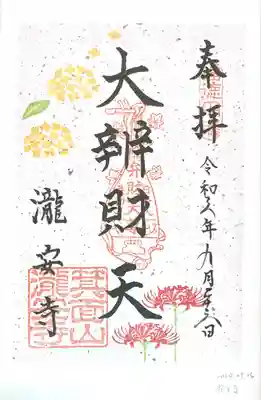 奉拝
令和六年九月
大辨財天
瀧安寺
箕面山
瀧安寺